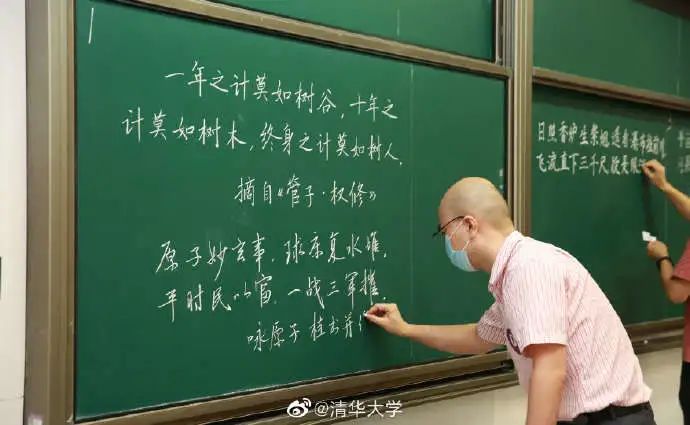 一年之计莫如树谷，十年之
计莫如树木，终身之计莫如树人。
摘自《管子·权修》
原子妙玄事，球床复水堆。
平时民以富，一战三军摧。
咏原子
日照香炉生紫烟 遥看瀑布挂前川
飞流直下三千尺 疑是银
@清华大学